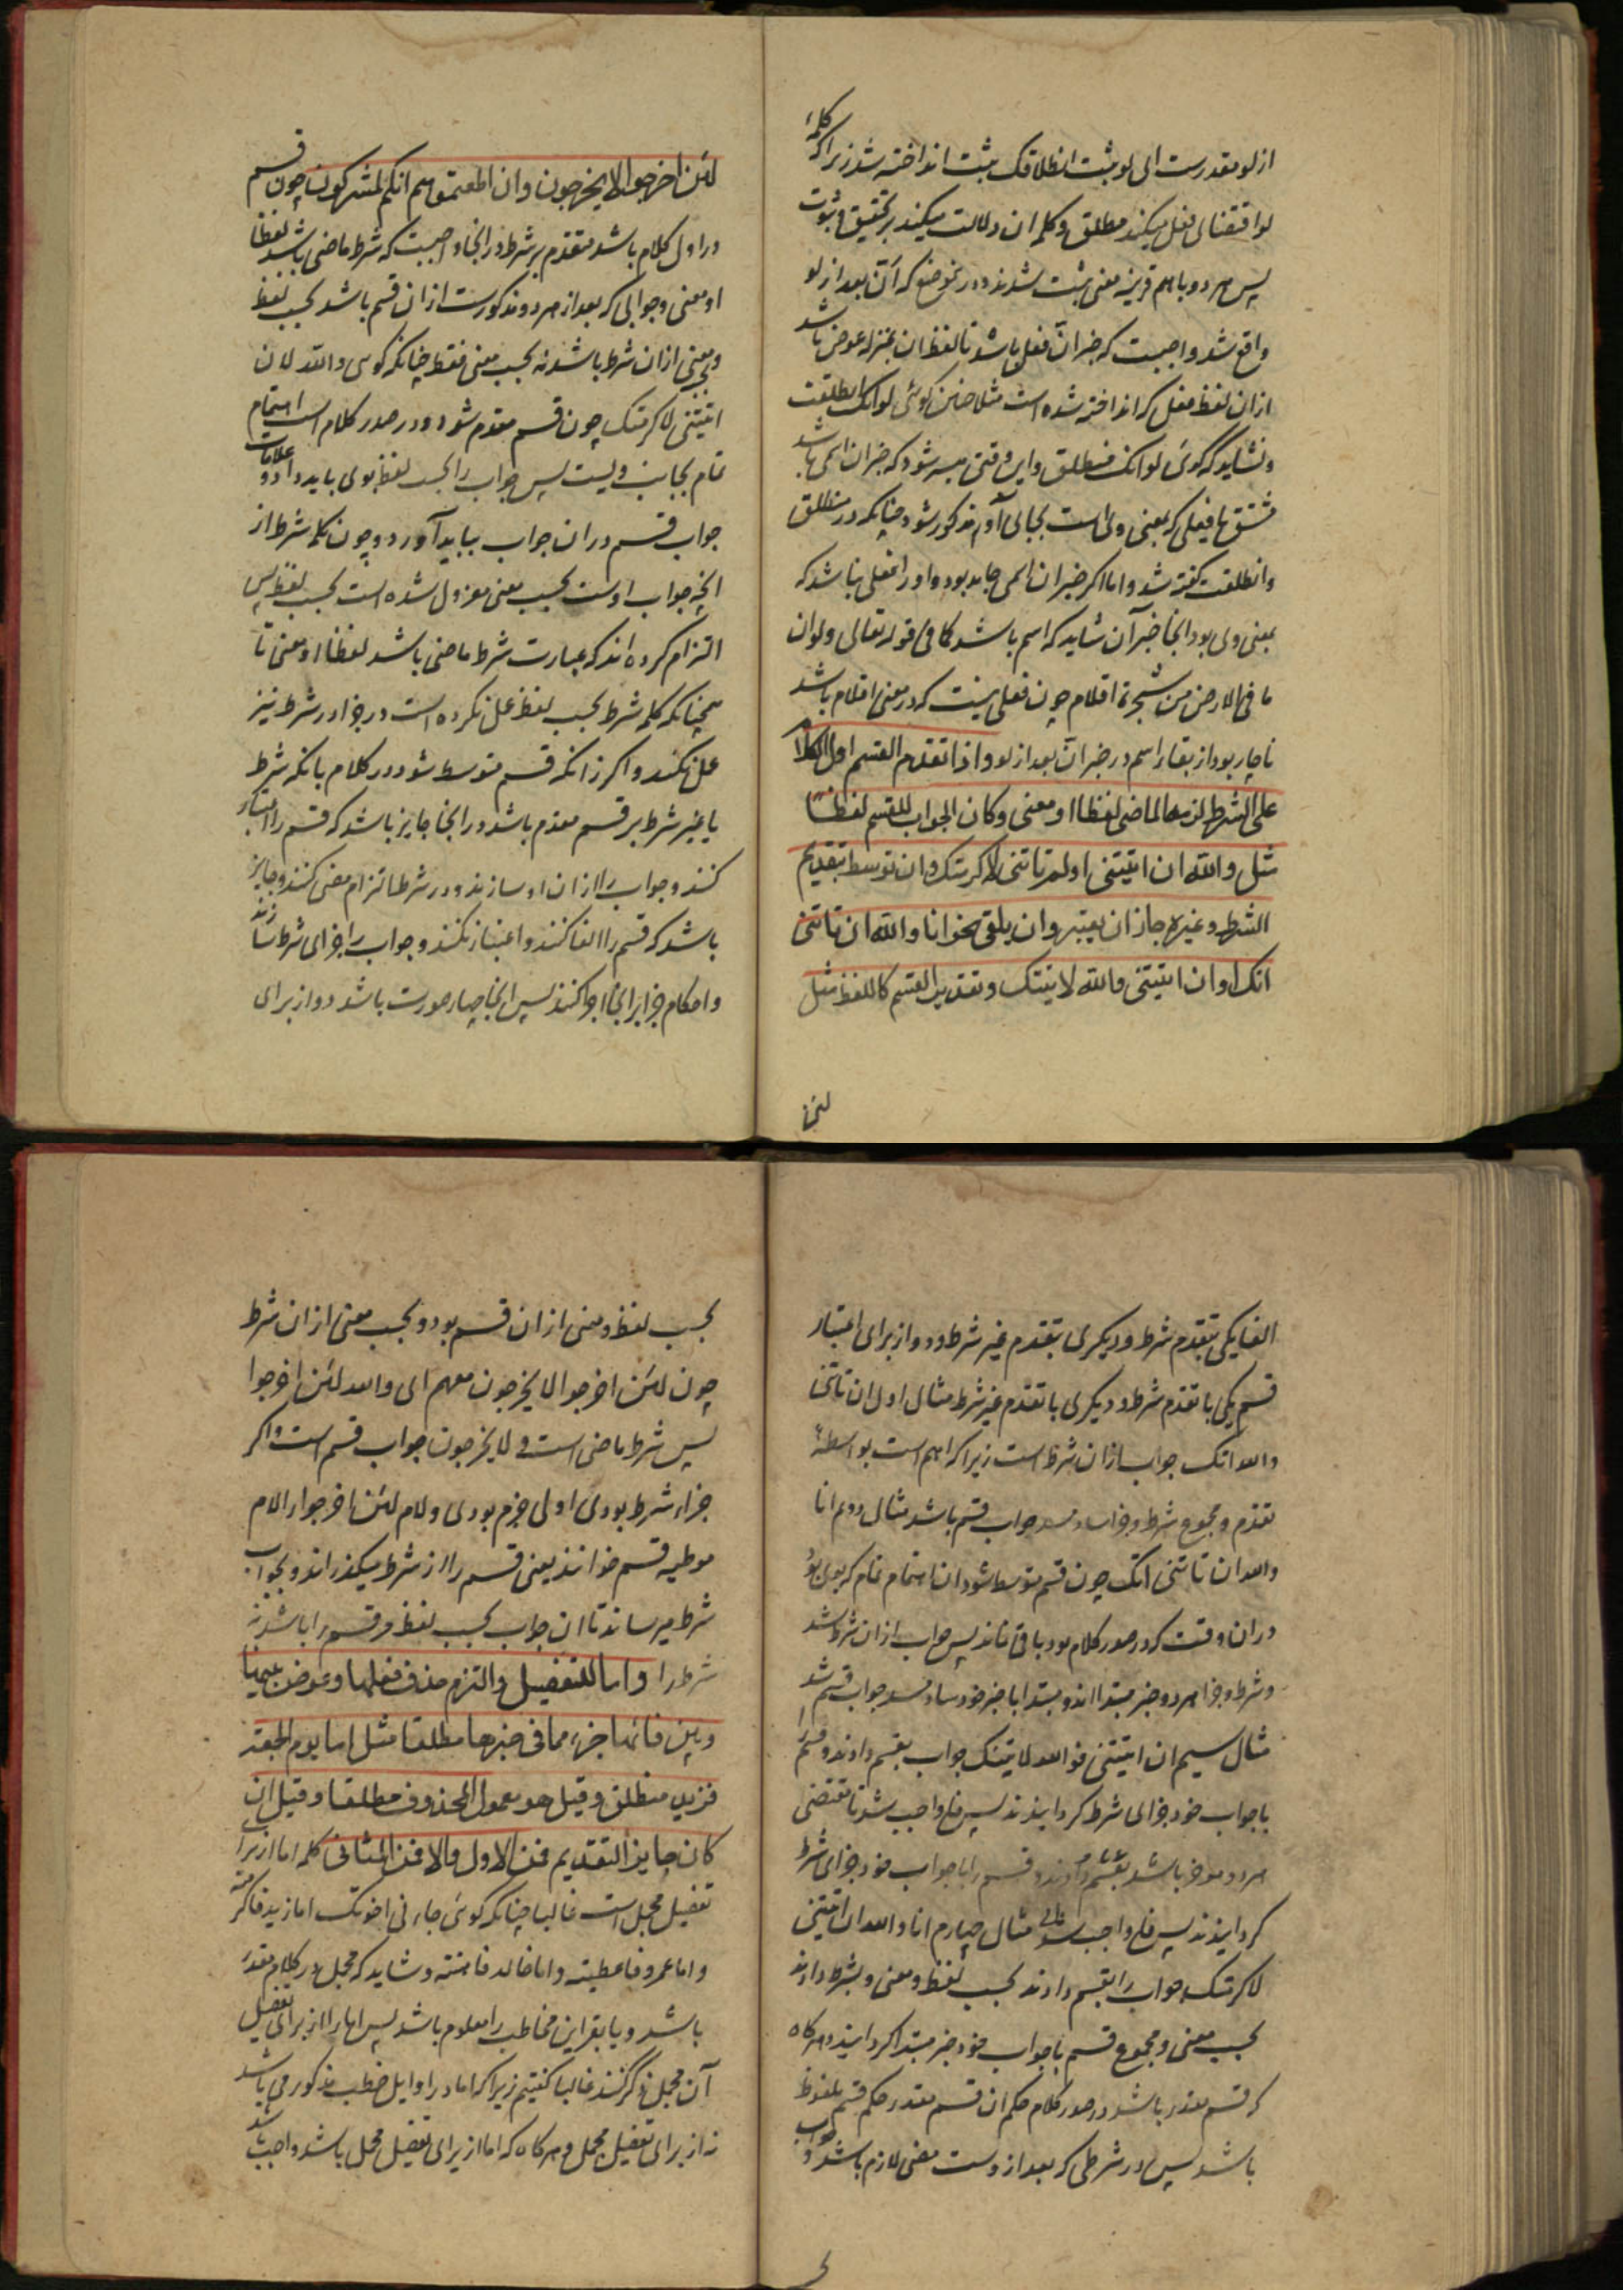 از لو مقدرست ای لو ثبت انطلاقک ثبت انداخته شد زیرا که کلمهٔ
لو اقتضای فعل میکند مطلق و کلمه ان دلالت میکند بر تحقیق و ثبوت
پس هر دو با هم قرینه معنی ثبت شدند و در موضع که انّ بعد از لو
واقع شد واجبست که خبر انّ فعل باشد تا لفظ ان بمنزله عوض باشد
از ان لفظ فعل که انداخته شده است مثلا چنین کوئی لو انک انطلقت
و نشاید که کوئی لو انک منطلق و این وقتی میسر شود که خبر ان اسمی باشد
مشتق یا فعلی که بمعنی وی است بجای آن مذکور شود چنانکه در منطلق
و انطلقت کفته شد و اما اکر خبر ان اسمی جامد بود و او را فعلی نباشد که
بمعنی وی بود انجا خبر آن شاید که اسم باشد کما فی قوله تعالی و لو ان
ما فی الارض من شجرة اقلام چون فعلی نیست که در معنی اقلام باشد
ناچار بود از بقاء اسم در خبر انّ بعد از لو واذا تقدم القسم اول الکلام
علی الشرط لزمه الماضی لفظا او معنی وکان الجواب للقسم لفظا
مثل والله ان اتیتنی او لم تاتنی لاکرمتک وان توسط بتقدیم
الشرط وغیره جاز ان یعتبر وان یلغی نحو انا والله ان تاتنی
اتک وان اتیتنی والله لاتینک وتقدیر القسم کاللفظ مثل
لئن
لئن اخرجوا لایخرجون وان اطعتموهم انکم لمشرکون چون قسم
در اول کلام باشد متقدم بر شرط در انجا واجبست که شرط ماضی باشد لفظا
او معنی و جوابی که بعد از هر دو مذکورست از ان قسم باشد بحسب لفظ
و معنی از ان شرط باشد نه بحسب معنی فقط چنانکه کوئی والله لان
اتیتنی لاکرمتک چون قسم مقدم شود و در صدر کلام است اهتمام
تمام بجانب ویست پس جواب را بحسب لفظ بوی باید داد و علامات
جواب قسم در ان جواب بباید آورد و چون کلمه شرط از
انچه جواب اوست بحسب معنی معزول شده است بحسب لفظ پس
التزام کرده اند که عبارت شرط ماضی باشد لفظا او معنی تا
همچنانکه کلمه شرط بحسب لفظ عمل نکرده است در جزا در شرط نیز
عمل نکند و اکر زانکه قسم متوسط شود در کلام بانکه شرط
یا غیر شرط بر قسم مقدم باشد در انجا جایز باشد که قسم را اعتبار
کنند و جواب را از ان او سازند و در شرط التزام مضی کنند و جایز
باشد که قسم را الغا کنند و اعتبار نکنند و جواب را جزای شرط سازند
و احکام جزا بر انجا اجرا کنند پس انجا چهار صورت باشد دو از برای
الغا یکی بتقدم شرط و دیکری بتقدم غیر شرط و دو از برای اعتبار
قسم یکی با تقدم شرط و دیکری با تقدم غیر شرط مثال اول ان تاتنی
والله اتک جواب از ان شرط است زیرا که اهم است بواسطهٔ
تقدم و مجموع شرط و جزا ساد مسد جواب قسم باشد مثال دوم انا
والله ان تاتنی اتک چون قسم متوسط شود ان اهتمام تمام که بوی بود
در ان وقت که در صدر کلام بود باقی نماند پس جواب از ان شرط شد
و شرط و جزا هر دو خبر مبتدا اند و مبتدا با خبر خود ساد مسد جواب قسم شد
مثال سیم ان اتیتنی فوالله لاتینک جواب بقسم دادند و قسم را
با جواب خود جزای شرط کردانیدند پس فا واجب شد تا مقتضی
هر دو موفر باشد بقسم دادند و قسم را با جواب خود جزای شرط
کردانیدند پس فا واجب شد مثال چهارم انا والله ان اتیتنی
لاکرمتک جواب را بقسم دادند بحسب لفظ و معنی و بشرط دادند
بحسب معنی و مجموع قسم با جواب خود خبر مبتدا کردانیدند و هرکاه
که قسم مقدر باشد در صدر کلام حکم ان قسم مقدر حکم قسم ملفوظ
باشد پس در شرطی که بعد از وست مضی لازم باشد و جواب
بحسب لفظ و معنی از ان قسم بود و بحسب معنی از ان شرط
چون لئن اخرجوا لا یخرجون معهم ای والله لئن اخرجوا
پس شرط ماضی است و لا یخرجون جواب قسم است و اکر
جزاء شرط بودی اولی جزم بودی و لام لئن اخرجوا را لام
موطیه قسم خوانند یعنی قسم را از شرط میکذراند و بجواب
شرط میرساند تا ان جواب بحسب لفظ مر قسم را باشد نه
شرط را واما للتفصیل والتزم حذف فعلها وعوض بینها
وبین فائها جزء مما فی حیزها مطلقا مثل اما یوم الجمعة
فزید منطلق وقیل هو معمول المحذوف مطلقا وقیل ان
کان جایز التقدیم فمن الاول والا فمن الثانی کلمه اما از برای
تفصیل مجمل است غالبا چنانکه کوئی جاءنی اخوتک اما زید فاکرمته
و اما عمرو فاعطیته و اما خالد فاهنته و شاید که مجمل در کلام مقدم
باشد و یا بقراین مخاطب را معلوم باشد پس اما را از برای تفصیل
آن مجمل ذکر کنند غالبا کفتیم زیرا که اما در اوایل خطب مذکور می باشد
نه از برای تفصیل مجمل و هرکاه که اما از برای تفصیل مجمل باشد واجب باشد